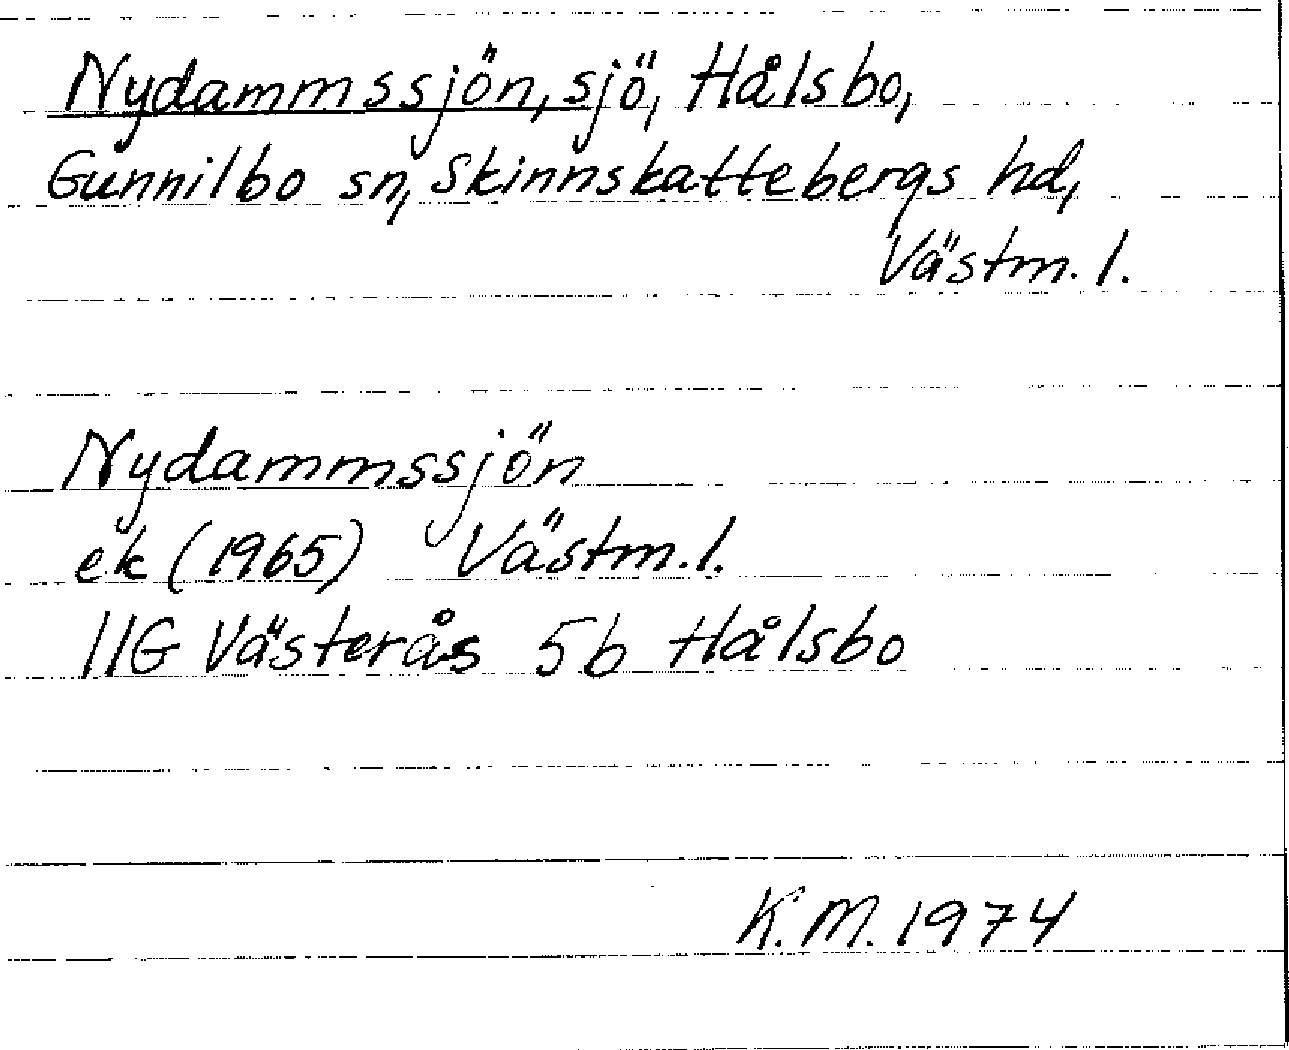 Nydammssjön, sjö, Hålsbo,
Gunnilbo sn, Skinnskattebergs hd,
Västm. l.
Nydammssjön
ek (1965) Västm. l.
11G Västerås 5b Hålsbo
K.M. 1974